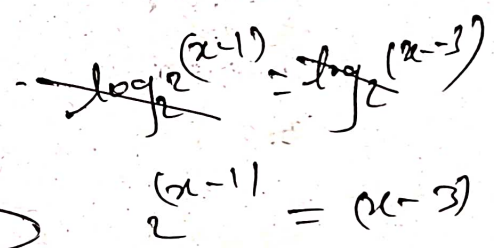 log₂ 2^(x-1) = log₂ (x-3)
2^(x-1) = (x-3)